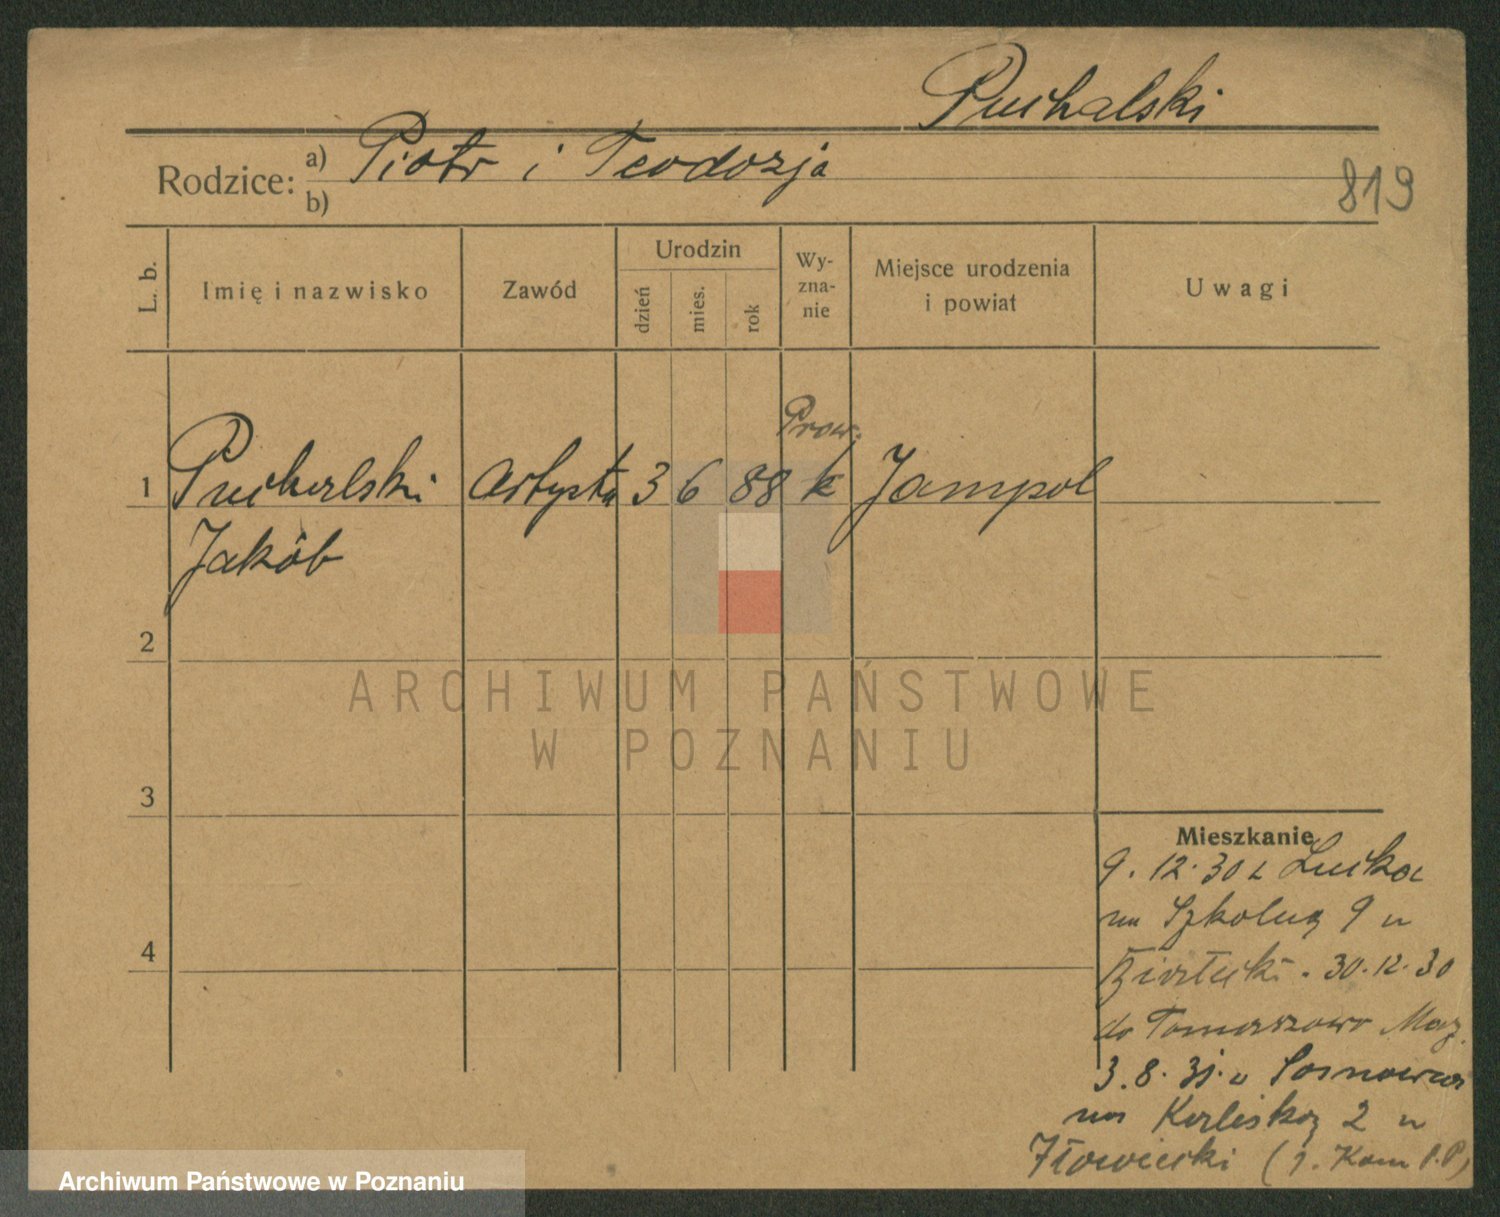 Puchalski
Rodzice: a) Piotr i Teodozja
b)
819
L. b.
Imię i nazwisko
Zawód
Urodzin
dzień
mies.
rok
Wy-
zna-
nie
Miejsce urodzenia
i powiat
Uwagi
Praw.
1 Puchalski artysta 3 6 88 k Jampol
Jakób
2
3
4
ARCHIWUM PAŃSTWOWE
W POZNANIU
Mieszkanie
9. 12. 30 z Łucka
na Szkolną 9 u
30. 12. 30
do Tomaszowa Maz.
3. 8. 31. z Sosnowca
na 2 u
(1. Kom P.P)
Archiwum Państwowe w Poznaniu